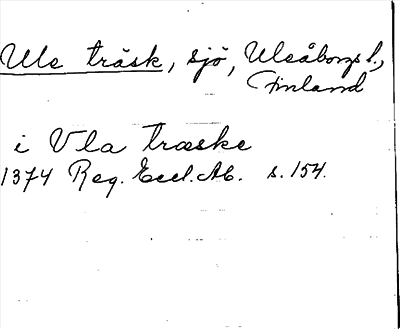 Ule träsk, sjö, Uleåborgs l.,
Finland
i Vla træske
1374 Reg. Eccl. Ab. s. 154.